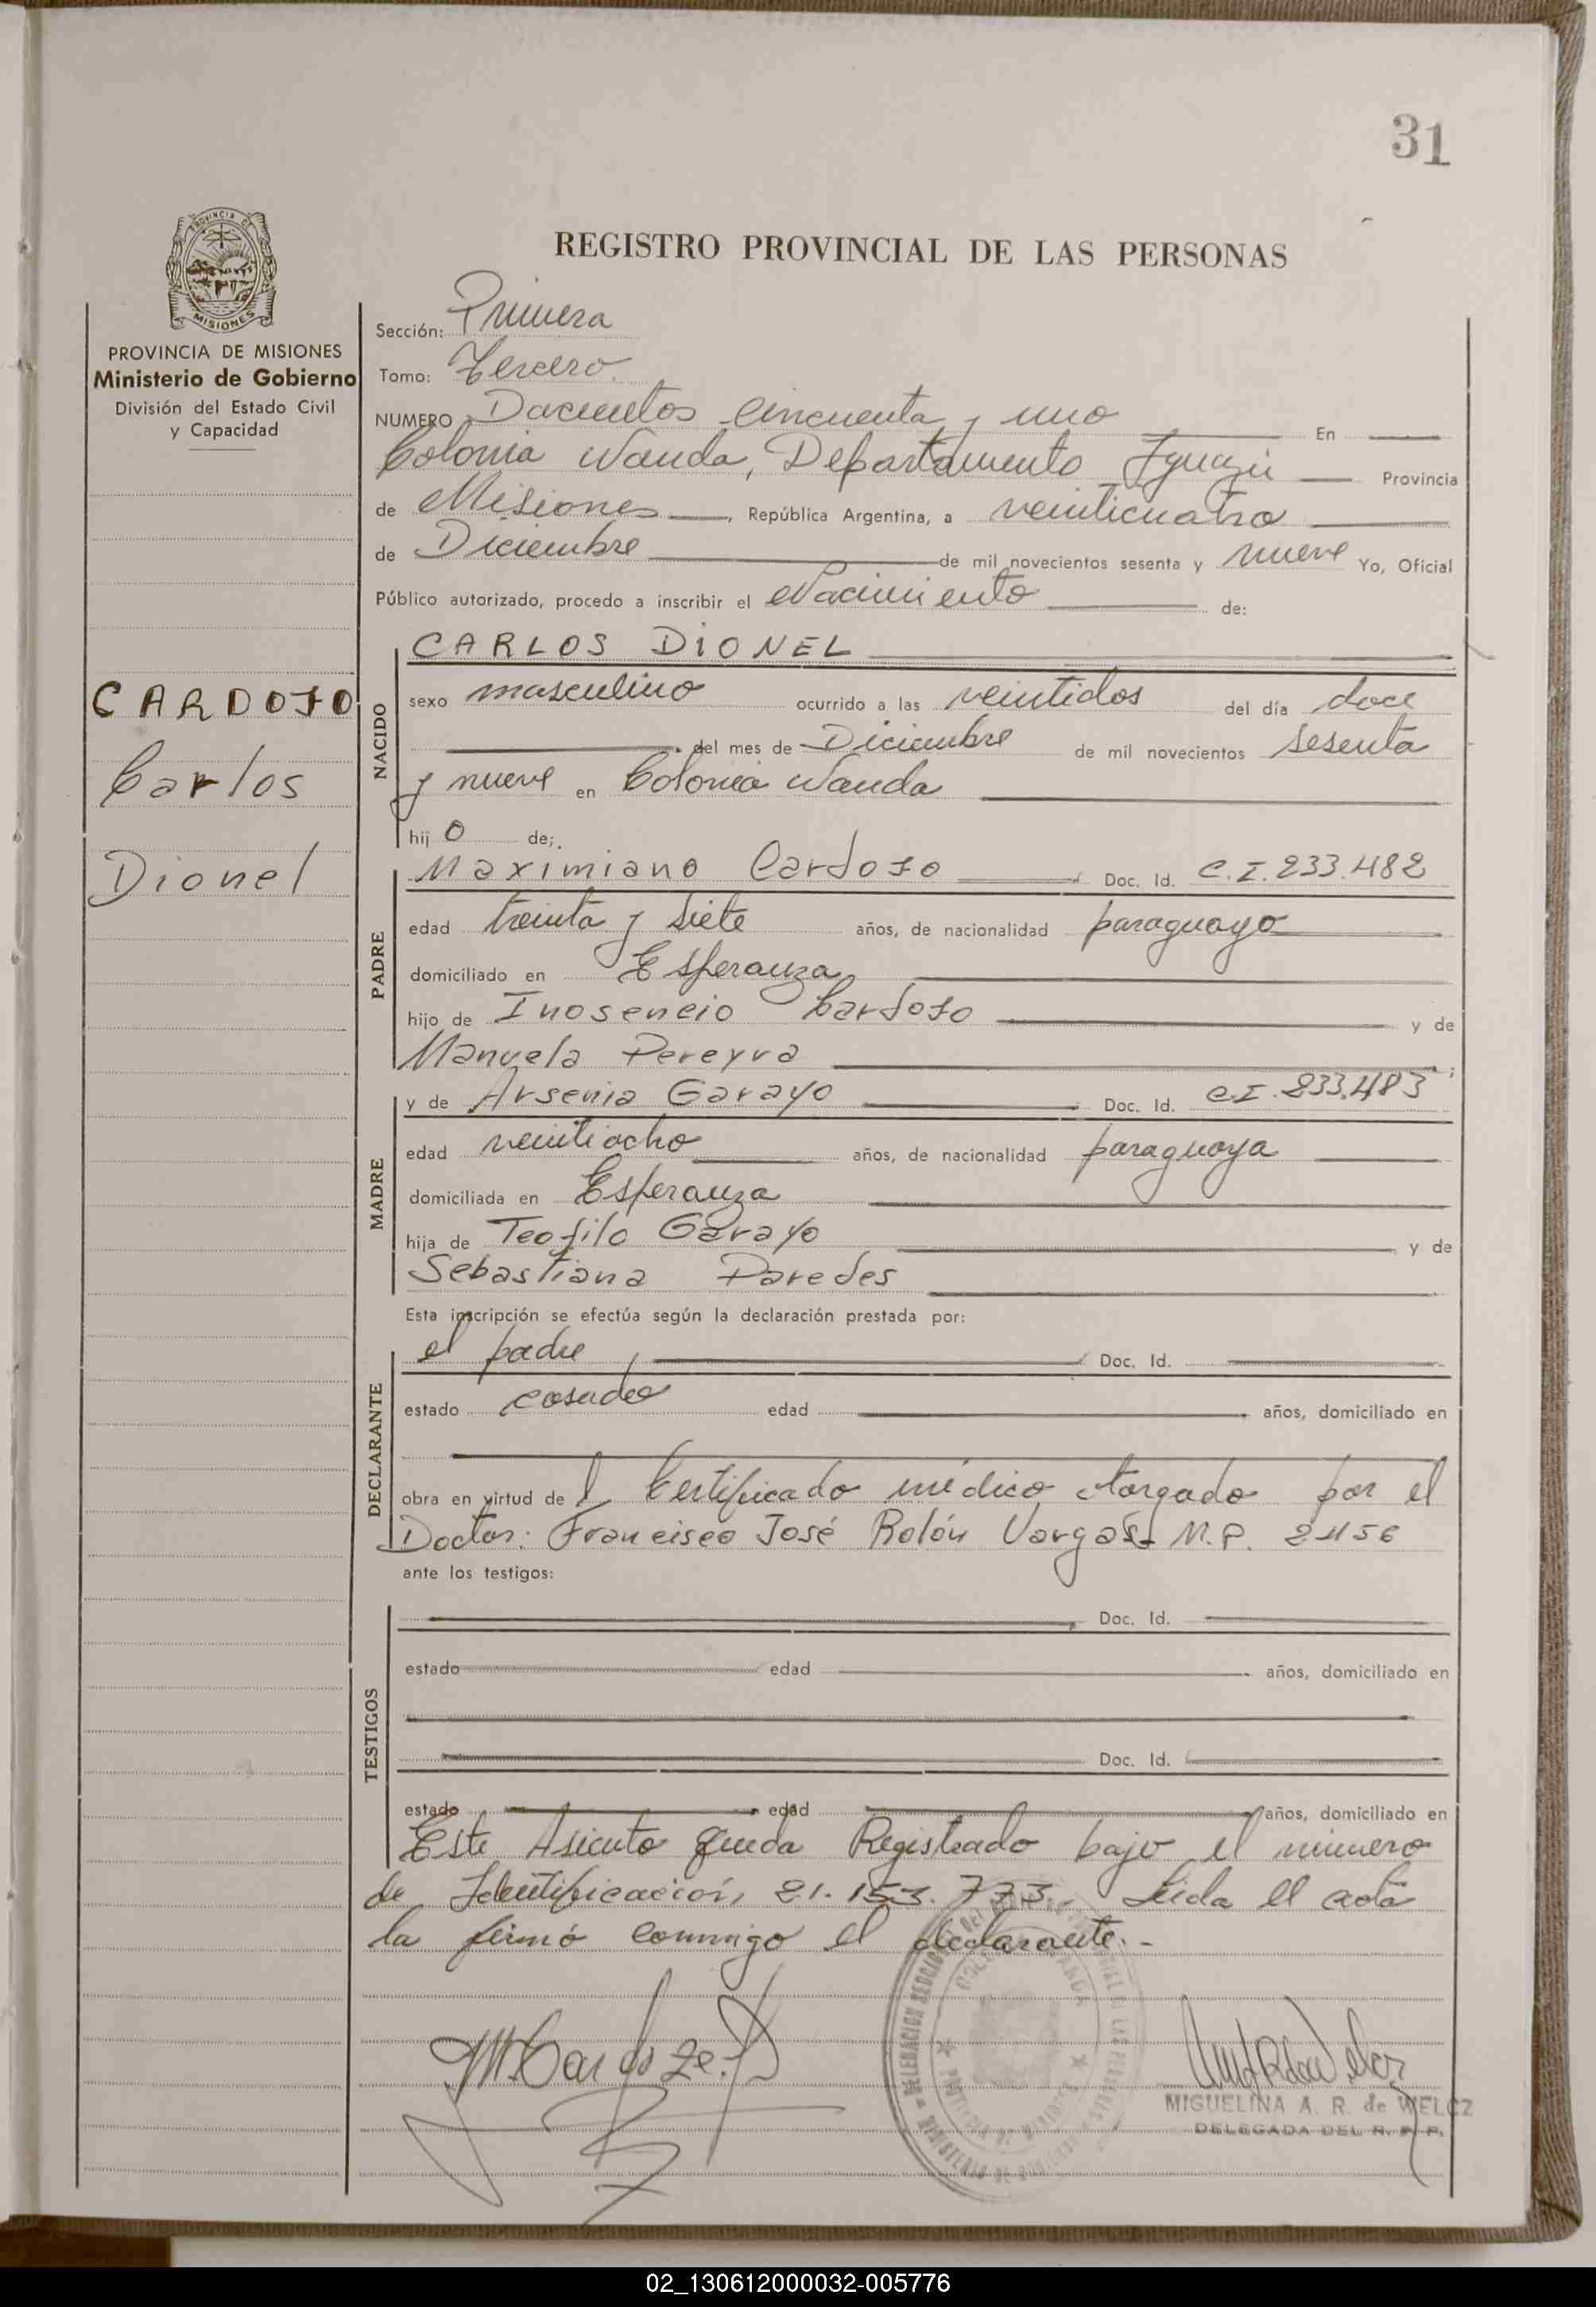 31
REGISTRO PROVINCIAL DE LAS PERSONAS
PROVINCIA DE MISIONES
Ministerio de Gobierno
División del Estado Civil
y Capacidad
CARDOZO
Carlos
Dionel
Sección: Primera
Tomo: Tercero.
NUMERO Docientos cincuenta y uno En
Colonia Wanda, Departamento Iguazú Provincia
de Misiones, República Argentina, a veinticuatro
de Diciembre de mil novecientos sesenta y nueve Yo, Oficial
Público autorizado, procedo a inscribir el Nacimiento de:
NACIDO
CARLOS DIONEL
sexo masculino ocurrido a las veintidos del día doce
del mes de Diciembre de mil novecientos sesenta
y nueve en Colonia Wanda
hijo de;
PADRE
Maximiano Cardozo Doc. Id. C.I. 233.482
edad treinta y siete años, de nacionalidad paraguayo
domiciliado en Esperanza
hijo de Inosencio Cardozo y de
Manuela Pereyra ;
MADRE
y de Arsenia Garayo Doc. Id. C.I. 233.483
edad veintiocho años, de nacionalidad paraguaya
domiciliada en Esperanza
hija de Teofilo Garayo y de
Sebastiana Paredes
Esta inscripción se efectúa según la declaración prestada por:
DECLARANTE
el padre, Doc. Id.
estado casado edad años, domiciliado en
obra en virtud de l Certificado médico otorgado por el
Doctor: Francisco José Rolón Vargas M.P. 2456
ante los testigos:
TESTIGOS
Doc. Id.
estado edad años, domiciliado en
Doc. Id.
estado edad años, domiciliado en
Este Asiento queda Registrado bajo el número
de Identificación, 21.153.773. Leida el acta
la firmó conmigo el declarante.-
MIGUELINA A. R. de WELCZ
DELEGADA DEL R. P. P.
02_130612000032-005776